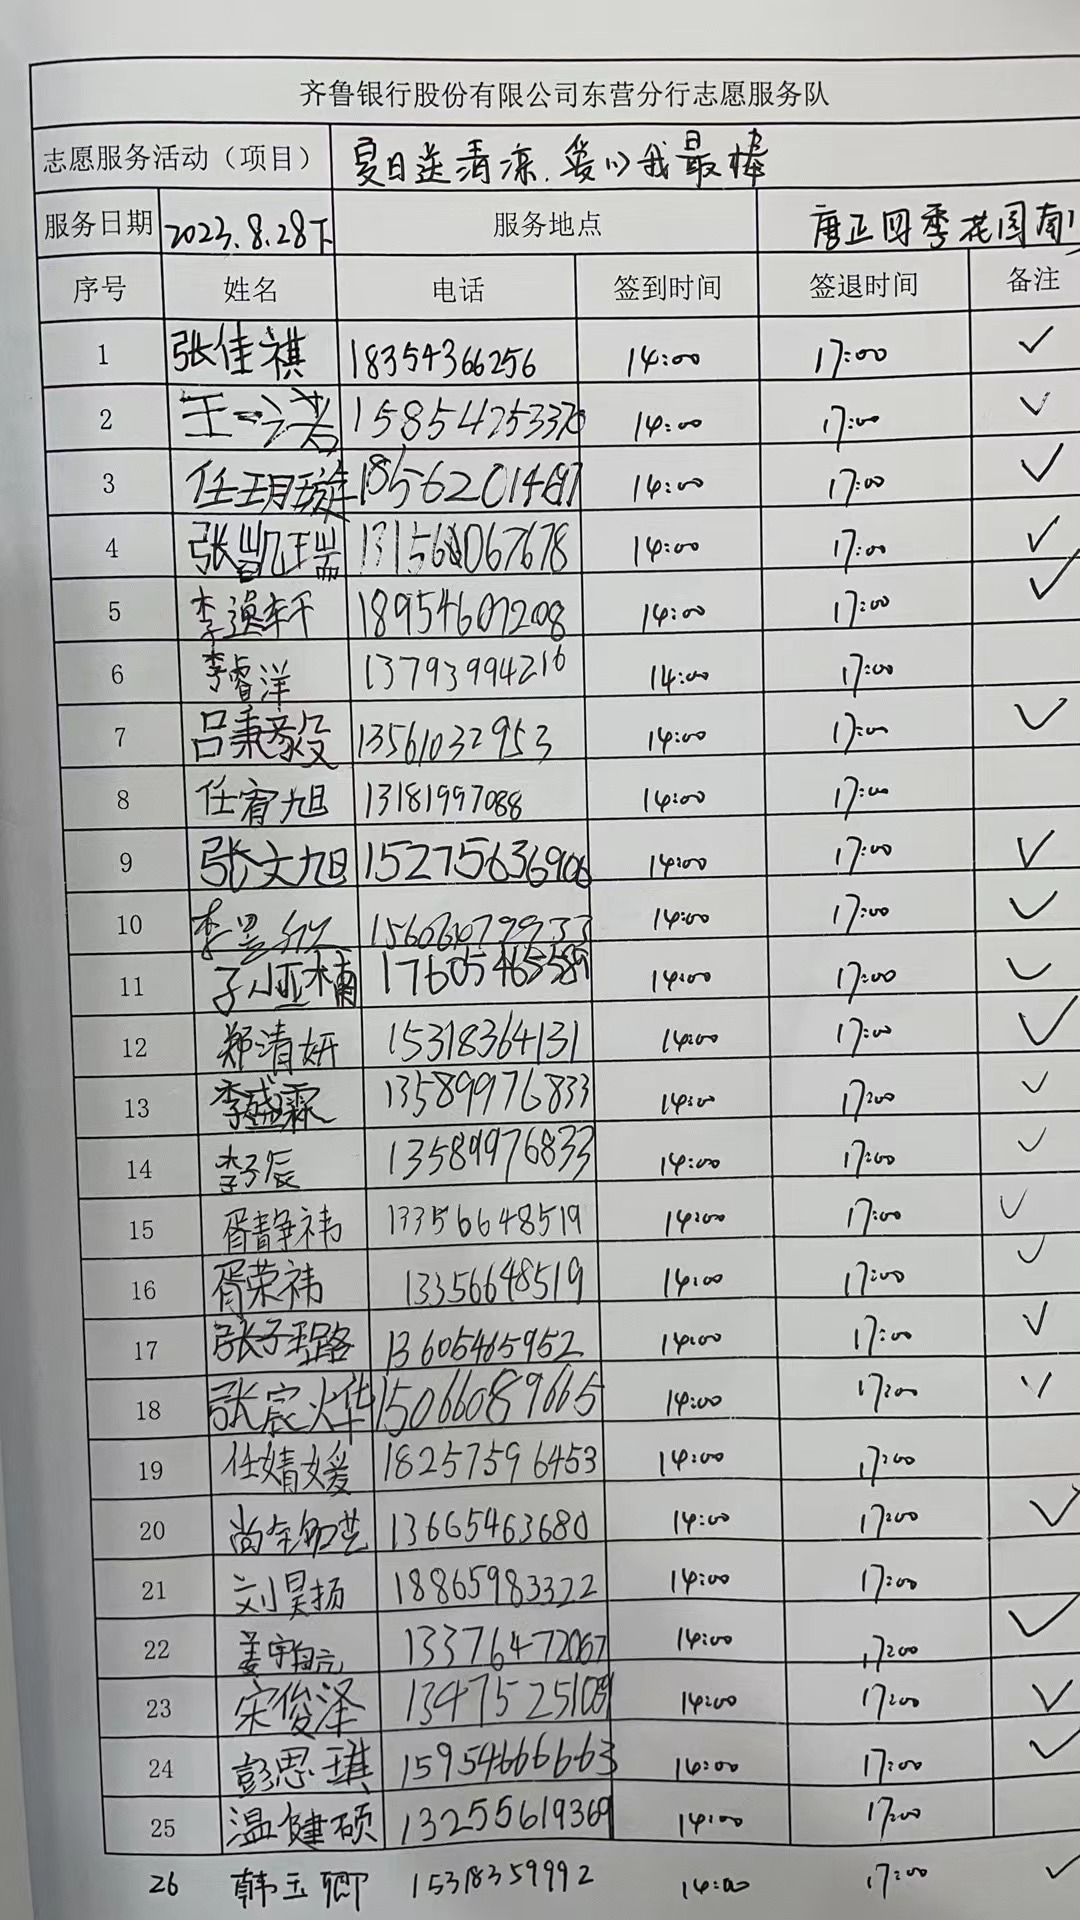 齐鲁银行股份有限公司东营分行志愿服务队
志愿服务活动（项目） 夏日送清凉.爱心我最棒
服务日期 2023.8.28下 服务地点 唐正四季花园南门
序号 姓名 电话 签到时间 签退时间 备注
1 张佳祺 18354366256 14:00 17:00 ✓
2 王一诺 15854253370 14:00 17:00 ✓
3 任玥璇 14:00 17:00 ✓
4 张凯瑞 14:00 17:00 ✓
5 李逸轩 18954607208 14:00 17:00 ✓
6 李睿洋 13793994216 14:00 17:00
7 吕秉毅 13561032953 14:00 17:00 ✓
8 任宥旭 13181997088 14:00 17:00
9 张文旭 15275636906 14:00 17:00 ✓
10 14:00 17:00 ✓
11 17605465589 14:00 17:00 ✓
12 郑清妍 15318364131 14:00 17:00 ✓
13 李盛霖 13589976833 14:00 17:00 ✓
14 李子辰 13589976833 14:00 17:00 ✓
15 胥静祎 13356648519 14:00 17:00 ✓
16 胥荣祎 13356648519 14:00 17:00 ✓
17 张子璐 13605465952 14:00 17:00 ✓
18 张宸烨 15066089665 14:00 17:00 ✓
19 任婧媛 18257596453 14:00 17:00
20 13665463680 14:00 17:00 ✓
21 刘昊扬 18865983322 14:00 17:00
22 13376472067 14:00 17:00 ✓
23 宋俊泽 13475251089 14:00 17:00 ✓
24 彭思琪 15954666663 14:00 17:00 ✓
25 温健硕 13255619369 14:00 17:00
26 韩玉卿 15318359992 14:00 17:00 ✓